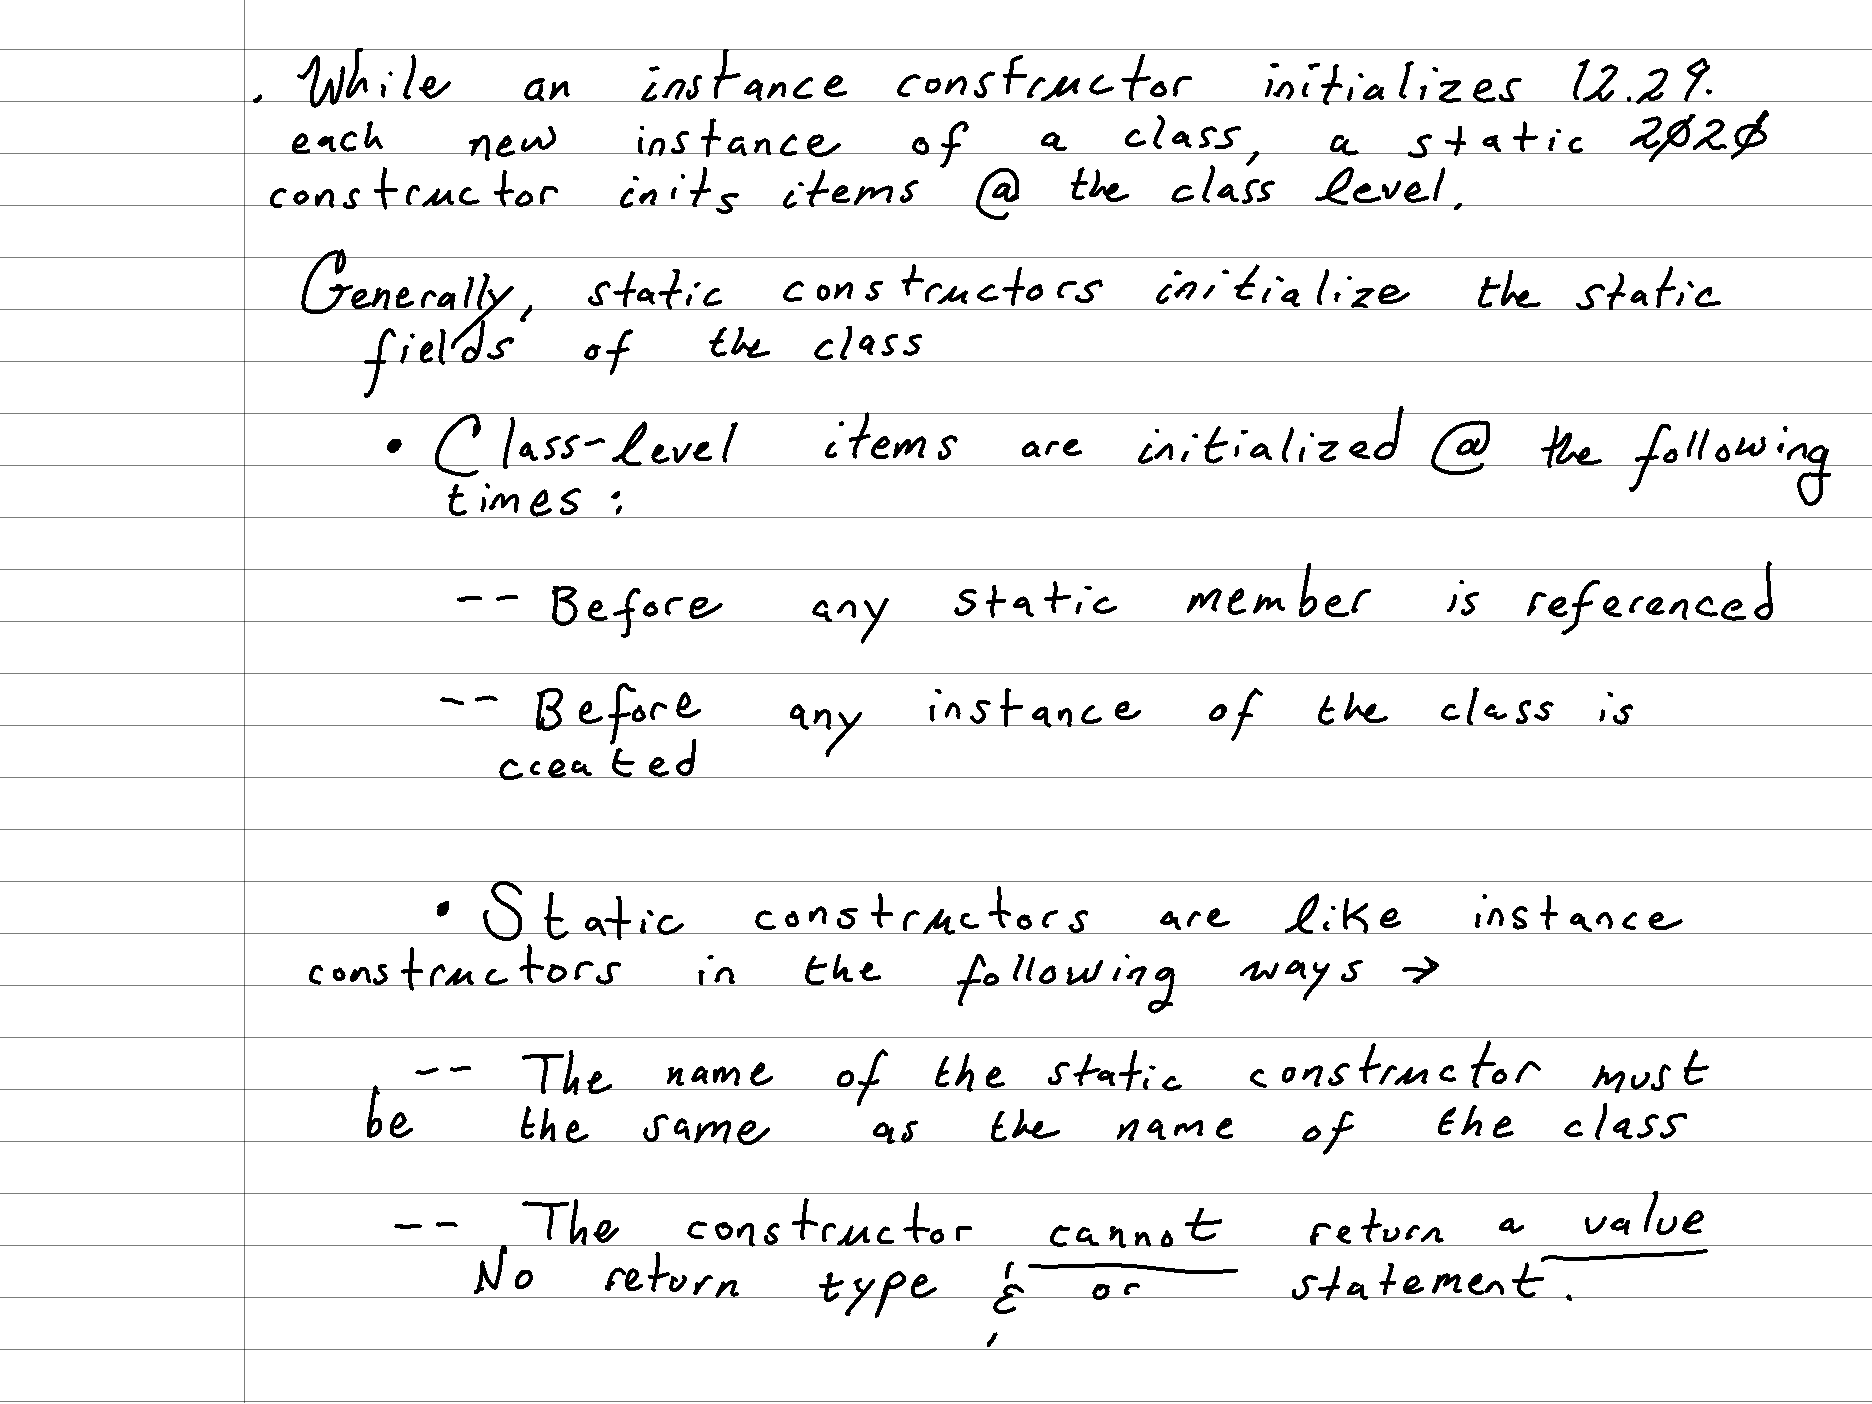 . While an instance constructor initializes 12.29.
each new instance of a class, a static 2020
constructor inits items @ the class level.
Generally, static constructors initialize the static
fields of the class
• Class-level items are initialized @ the following
times:
-- Before any static member is referenced
-- Before any instance of the class is
created
• Static constructors are like instance
constructors in the following ways →
-- The name of the static constructor must
be the same as the name of the class
-- The constructor cannot return a value
No return type & or statement.